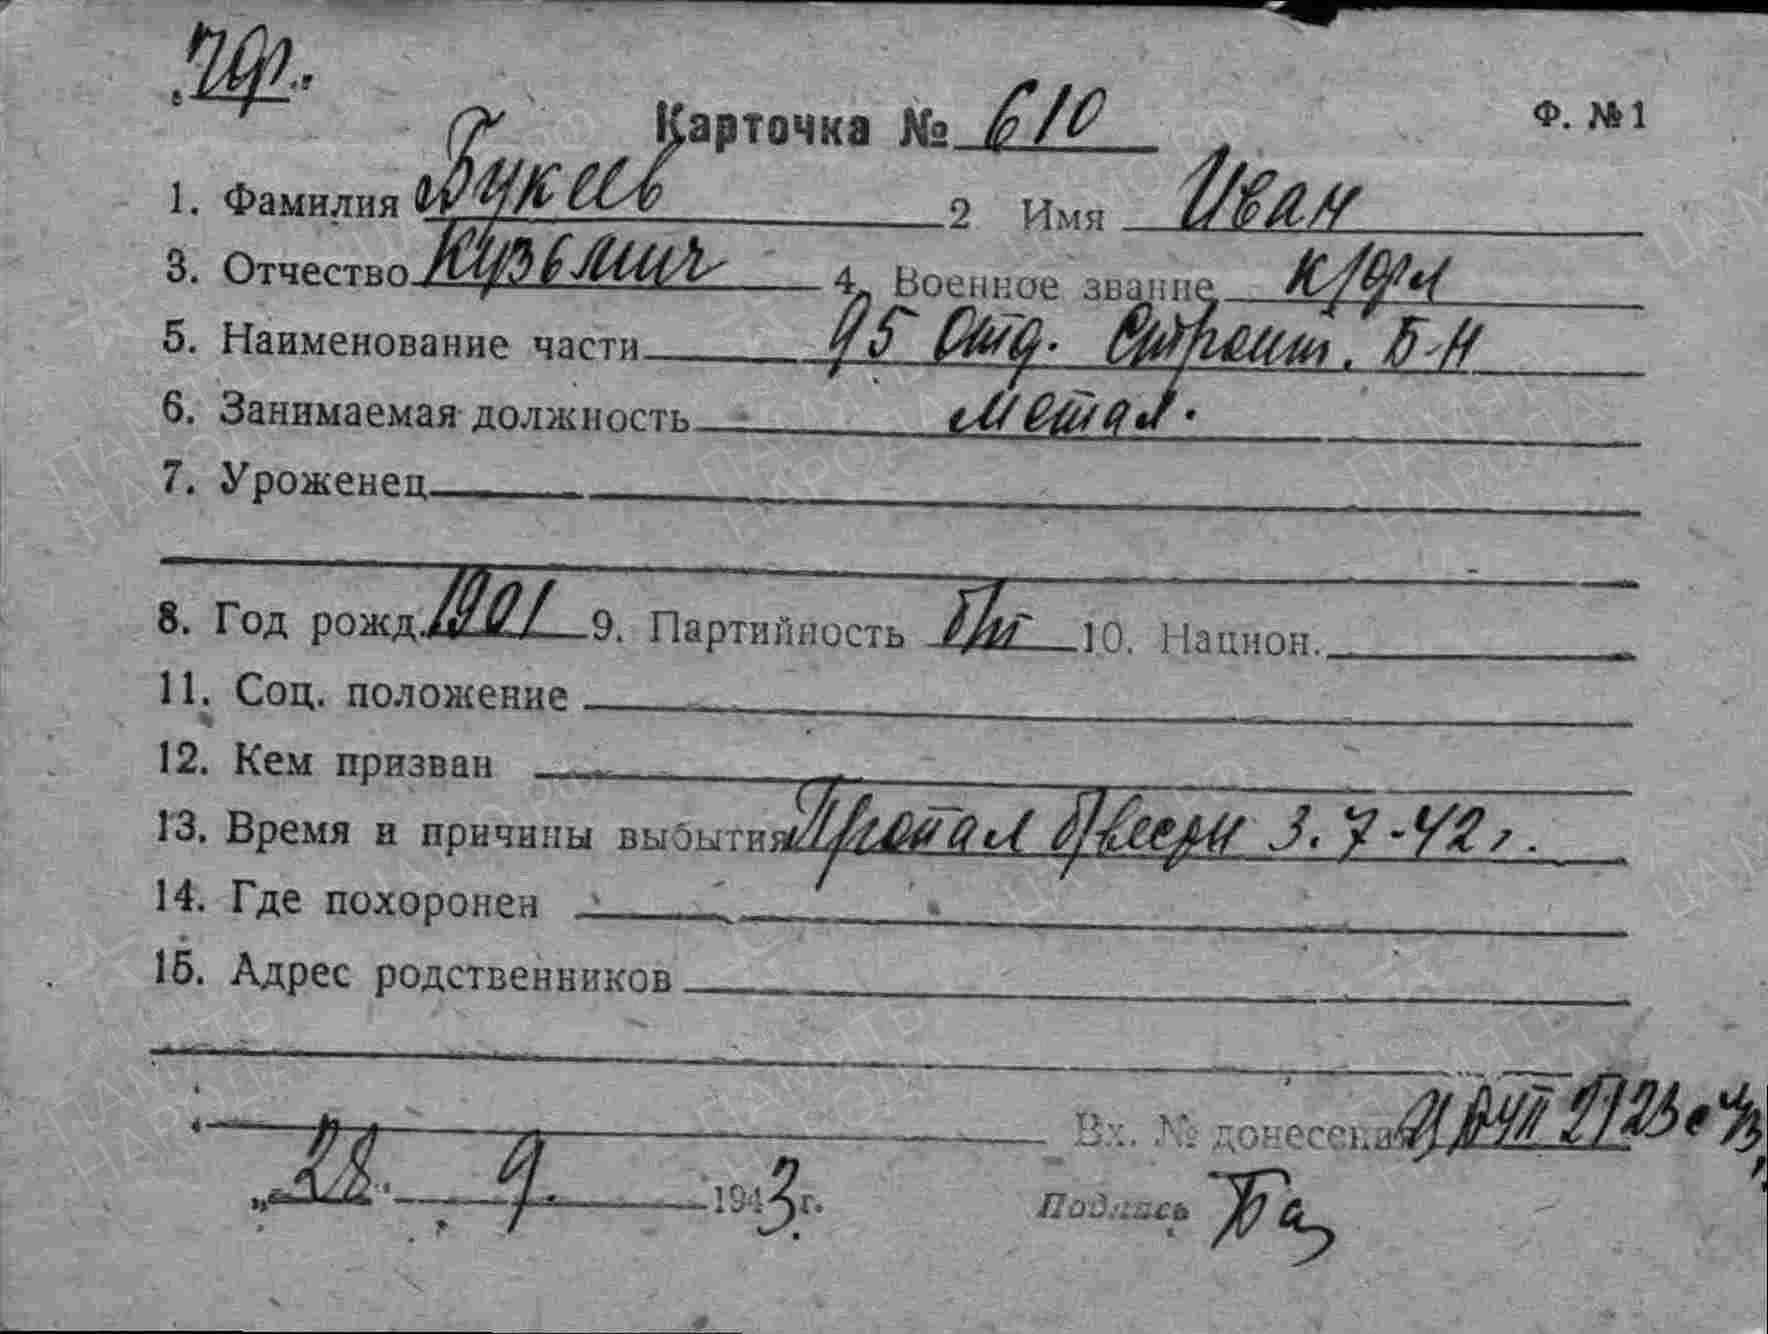 Карточка № 610
Ф. № 1
1. Фамилия Букеев 2 Имя Иван
3. Отчество Кузьмич 4. Военное звание к/фл
5. Наименование части 95 Отд. Строит. Б-н
6. Занимаемая должность метал.
7. Уроженец
8. Год рожд. 1901 9. Партийность б/п 10. Национ.
11. Соц. положение
12. Кем призван
13. Время и причины выбытия Пропал б/вести 3.7-42 г.
14. Где похоронен
15. Адрес родственников
Вх. № донесения
„28" 9. 1943 г. Подпись